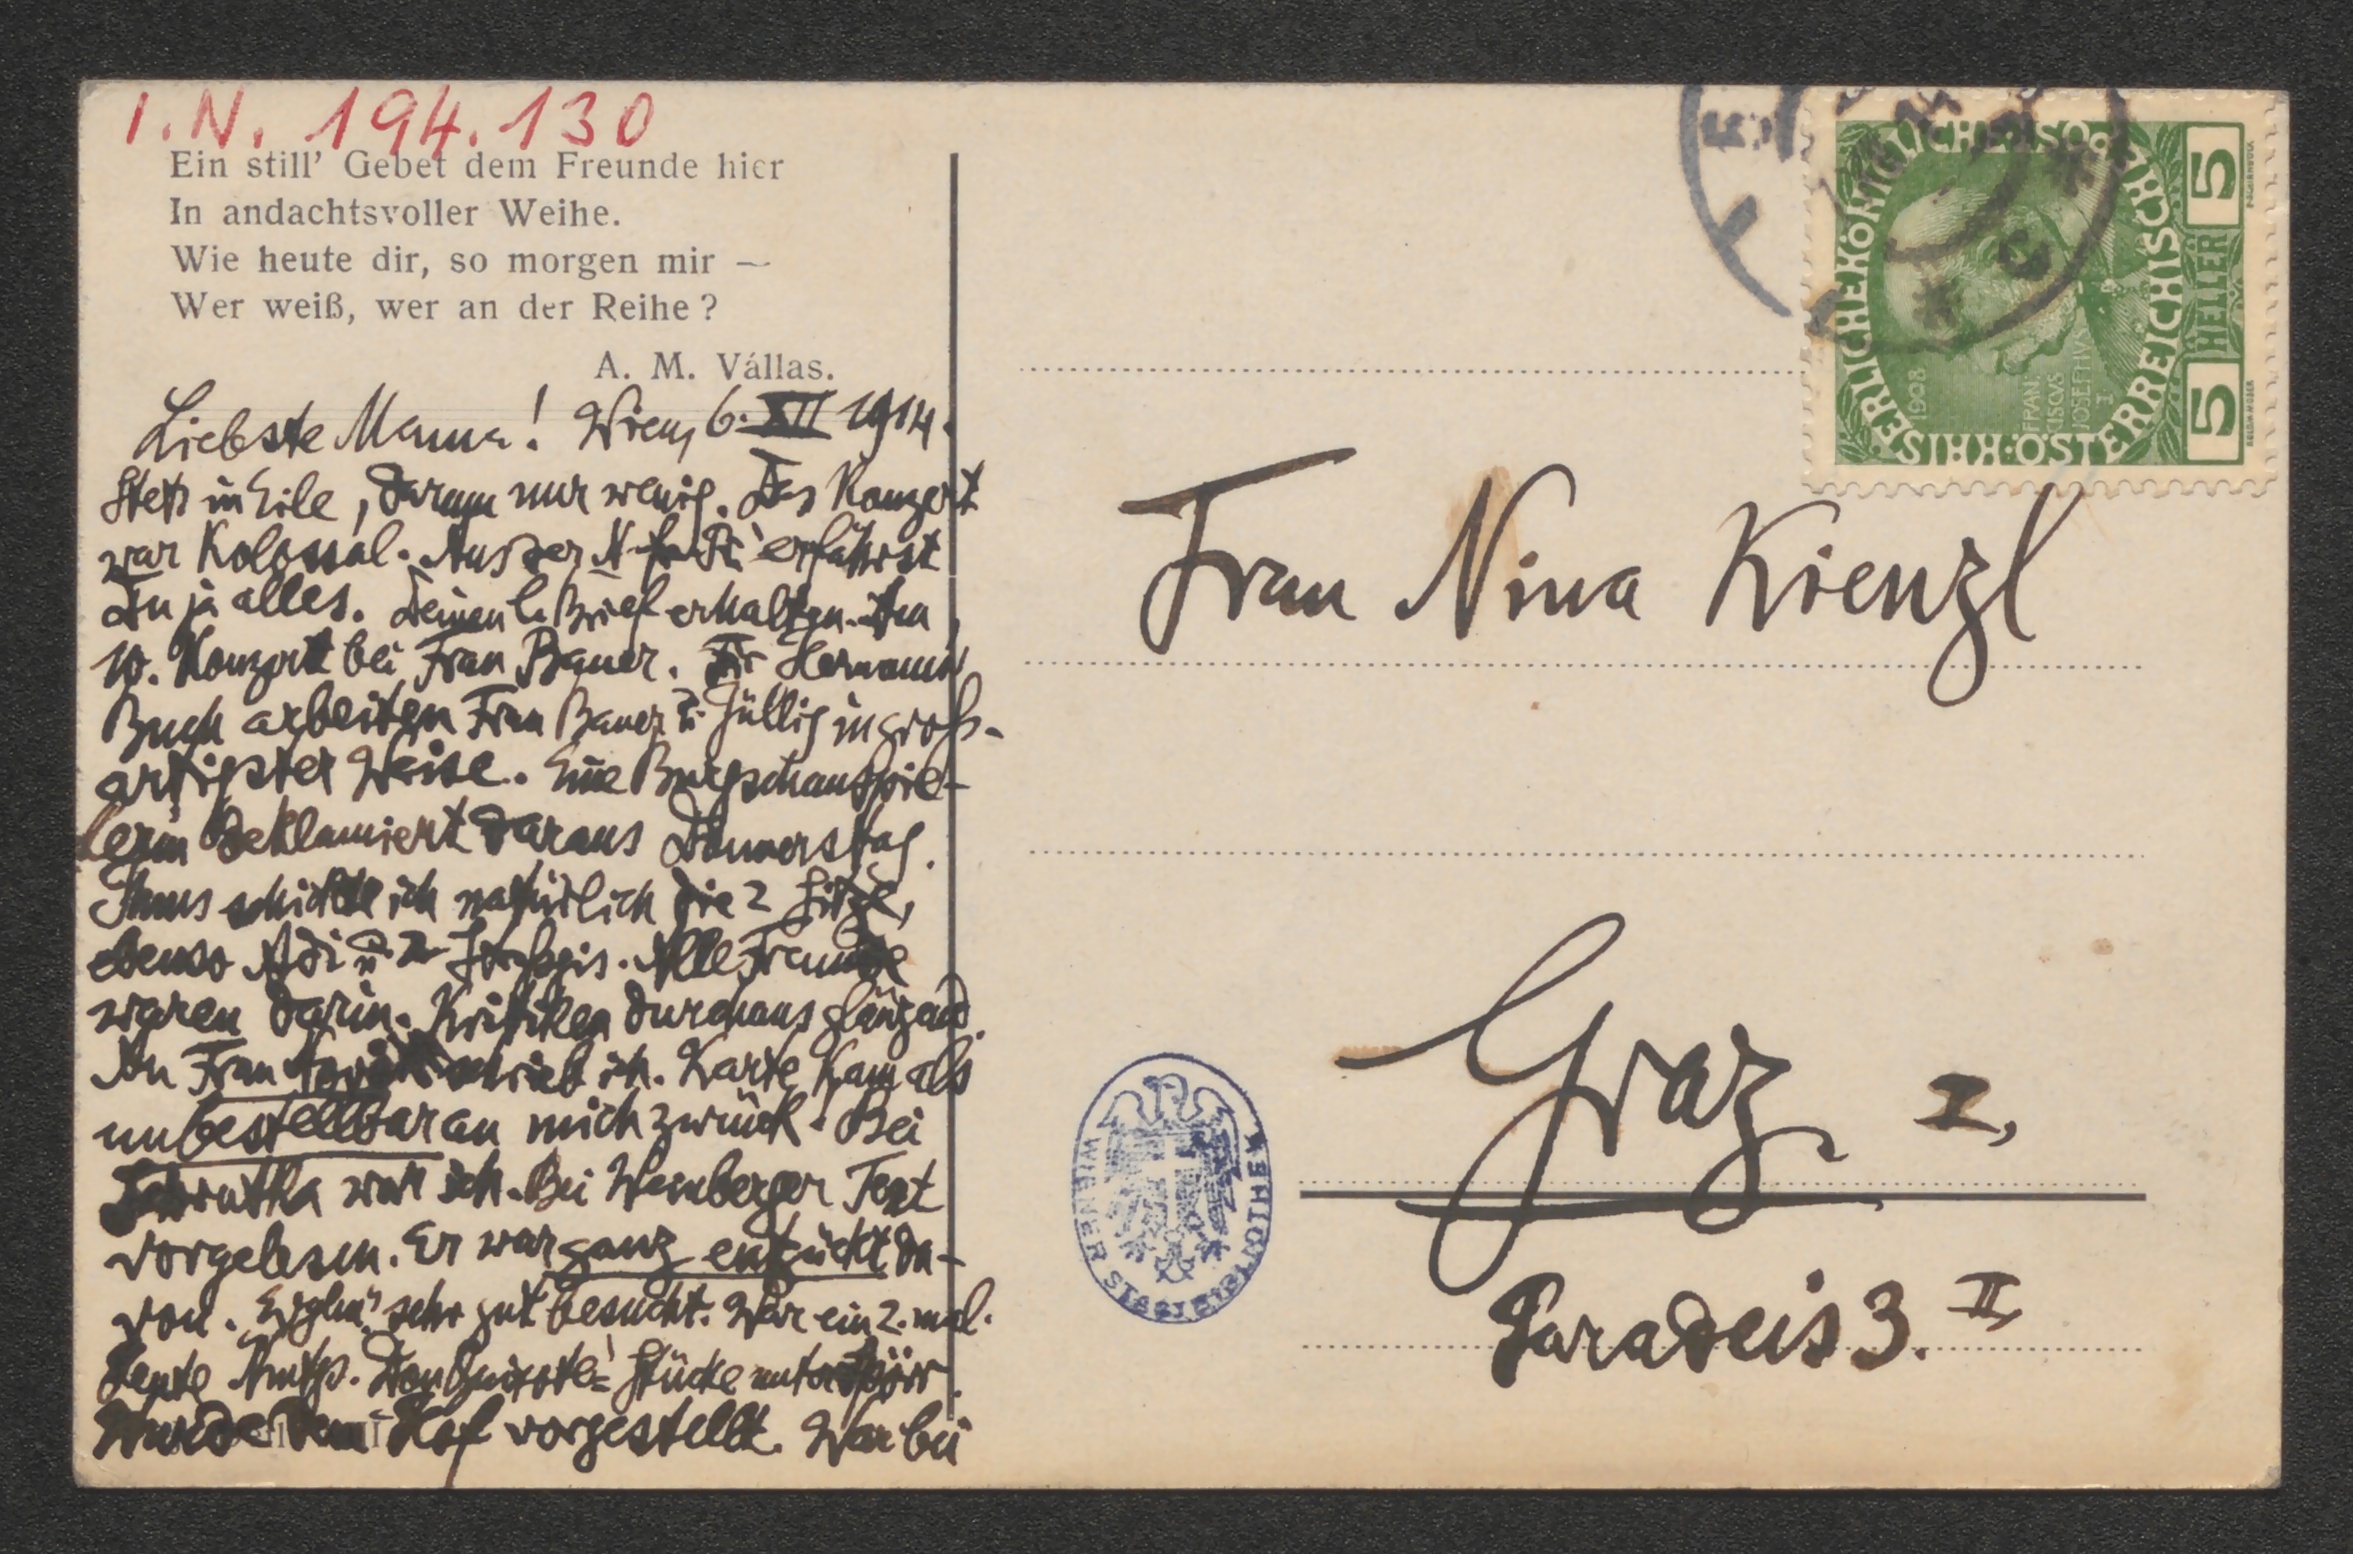 I.N. 194.130
Ein still' Gebet dem Freunde hier
In andachtsvoller Weihe.
Wie heute dir, so morgen mir —
Wer weiß, wer an der Reihe?
A. M. Vállas.
Liebste Mama! Wien, 6. XII 1914.
Stets in Eile, darum nur wenig. Das Konzert
war Kolossal. Aus der erfährst
Du ja alles. Deinen l. Brief erhalten. Am
10. Konzert bei Frau Bauer. Für Hermanns
Buch arbeiten Frau Bauer u. Jüllig in groß-
artigster Weise. Eine Burgschauspie-
lerin deklamiert daraus Donnerstag.
schickte ich natürlich die 2 Sitze,
ebenso Adi u. Alle Freunde
waren darin. Kritiken durchaus glänzend.
An Frau schrieb ich. Karte kam als
unbestellbar an mich zurück. Bei
war ich. Bei Weinberger Text
vorgelesen. Er war ganz entzückt da-
von. sehr gut besucht. War ein 2. mal.
Heute Don Quixote = Stücke
Wurde dem Hof vorgestellt. War bei
KAISERLICHE KÖNIGLICHE ÖSTERREICHISCHE POST
5 HELLER 5
1908
FRANCISCVS JOSEPH I
Frau Nina Kienzl
Graz I,
Paradeis 3. II
WIENER STADTBIBLIOTHEK